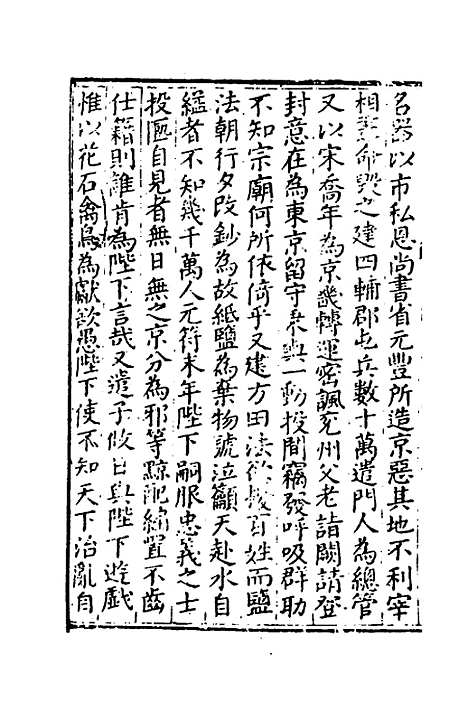 名器以市私恩尚書省元豐所造京惡其地不利宰
相輒命毀之建四輔郡屯兵數十萬遣門人為總管
又以宋喬年為京畿轉運密諷兖州父老詣闕請登
封意在為東京留守乘輿一動投間竊發呼吸群助
不知宗廟何所依倚乎又建方田法欲擾百姓而鹽
法朝行夕改鈔為故紙鹽為棄物號泣籲天赴水自
縊者不知幾千萬人元符末年陛下嗣服忠義之士
投匭自見者無日無之京分為邪等黥配編置不齒
仕籍則誰肯為陛下言哉又遣子攸日與陛下遊戲
惟以花石禽鳥為獻欲愚陛下使不知天下治亂自